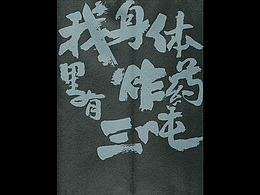 我身体
里有炸药
三吨